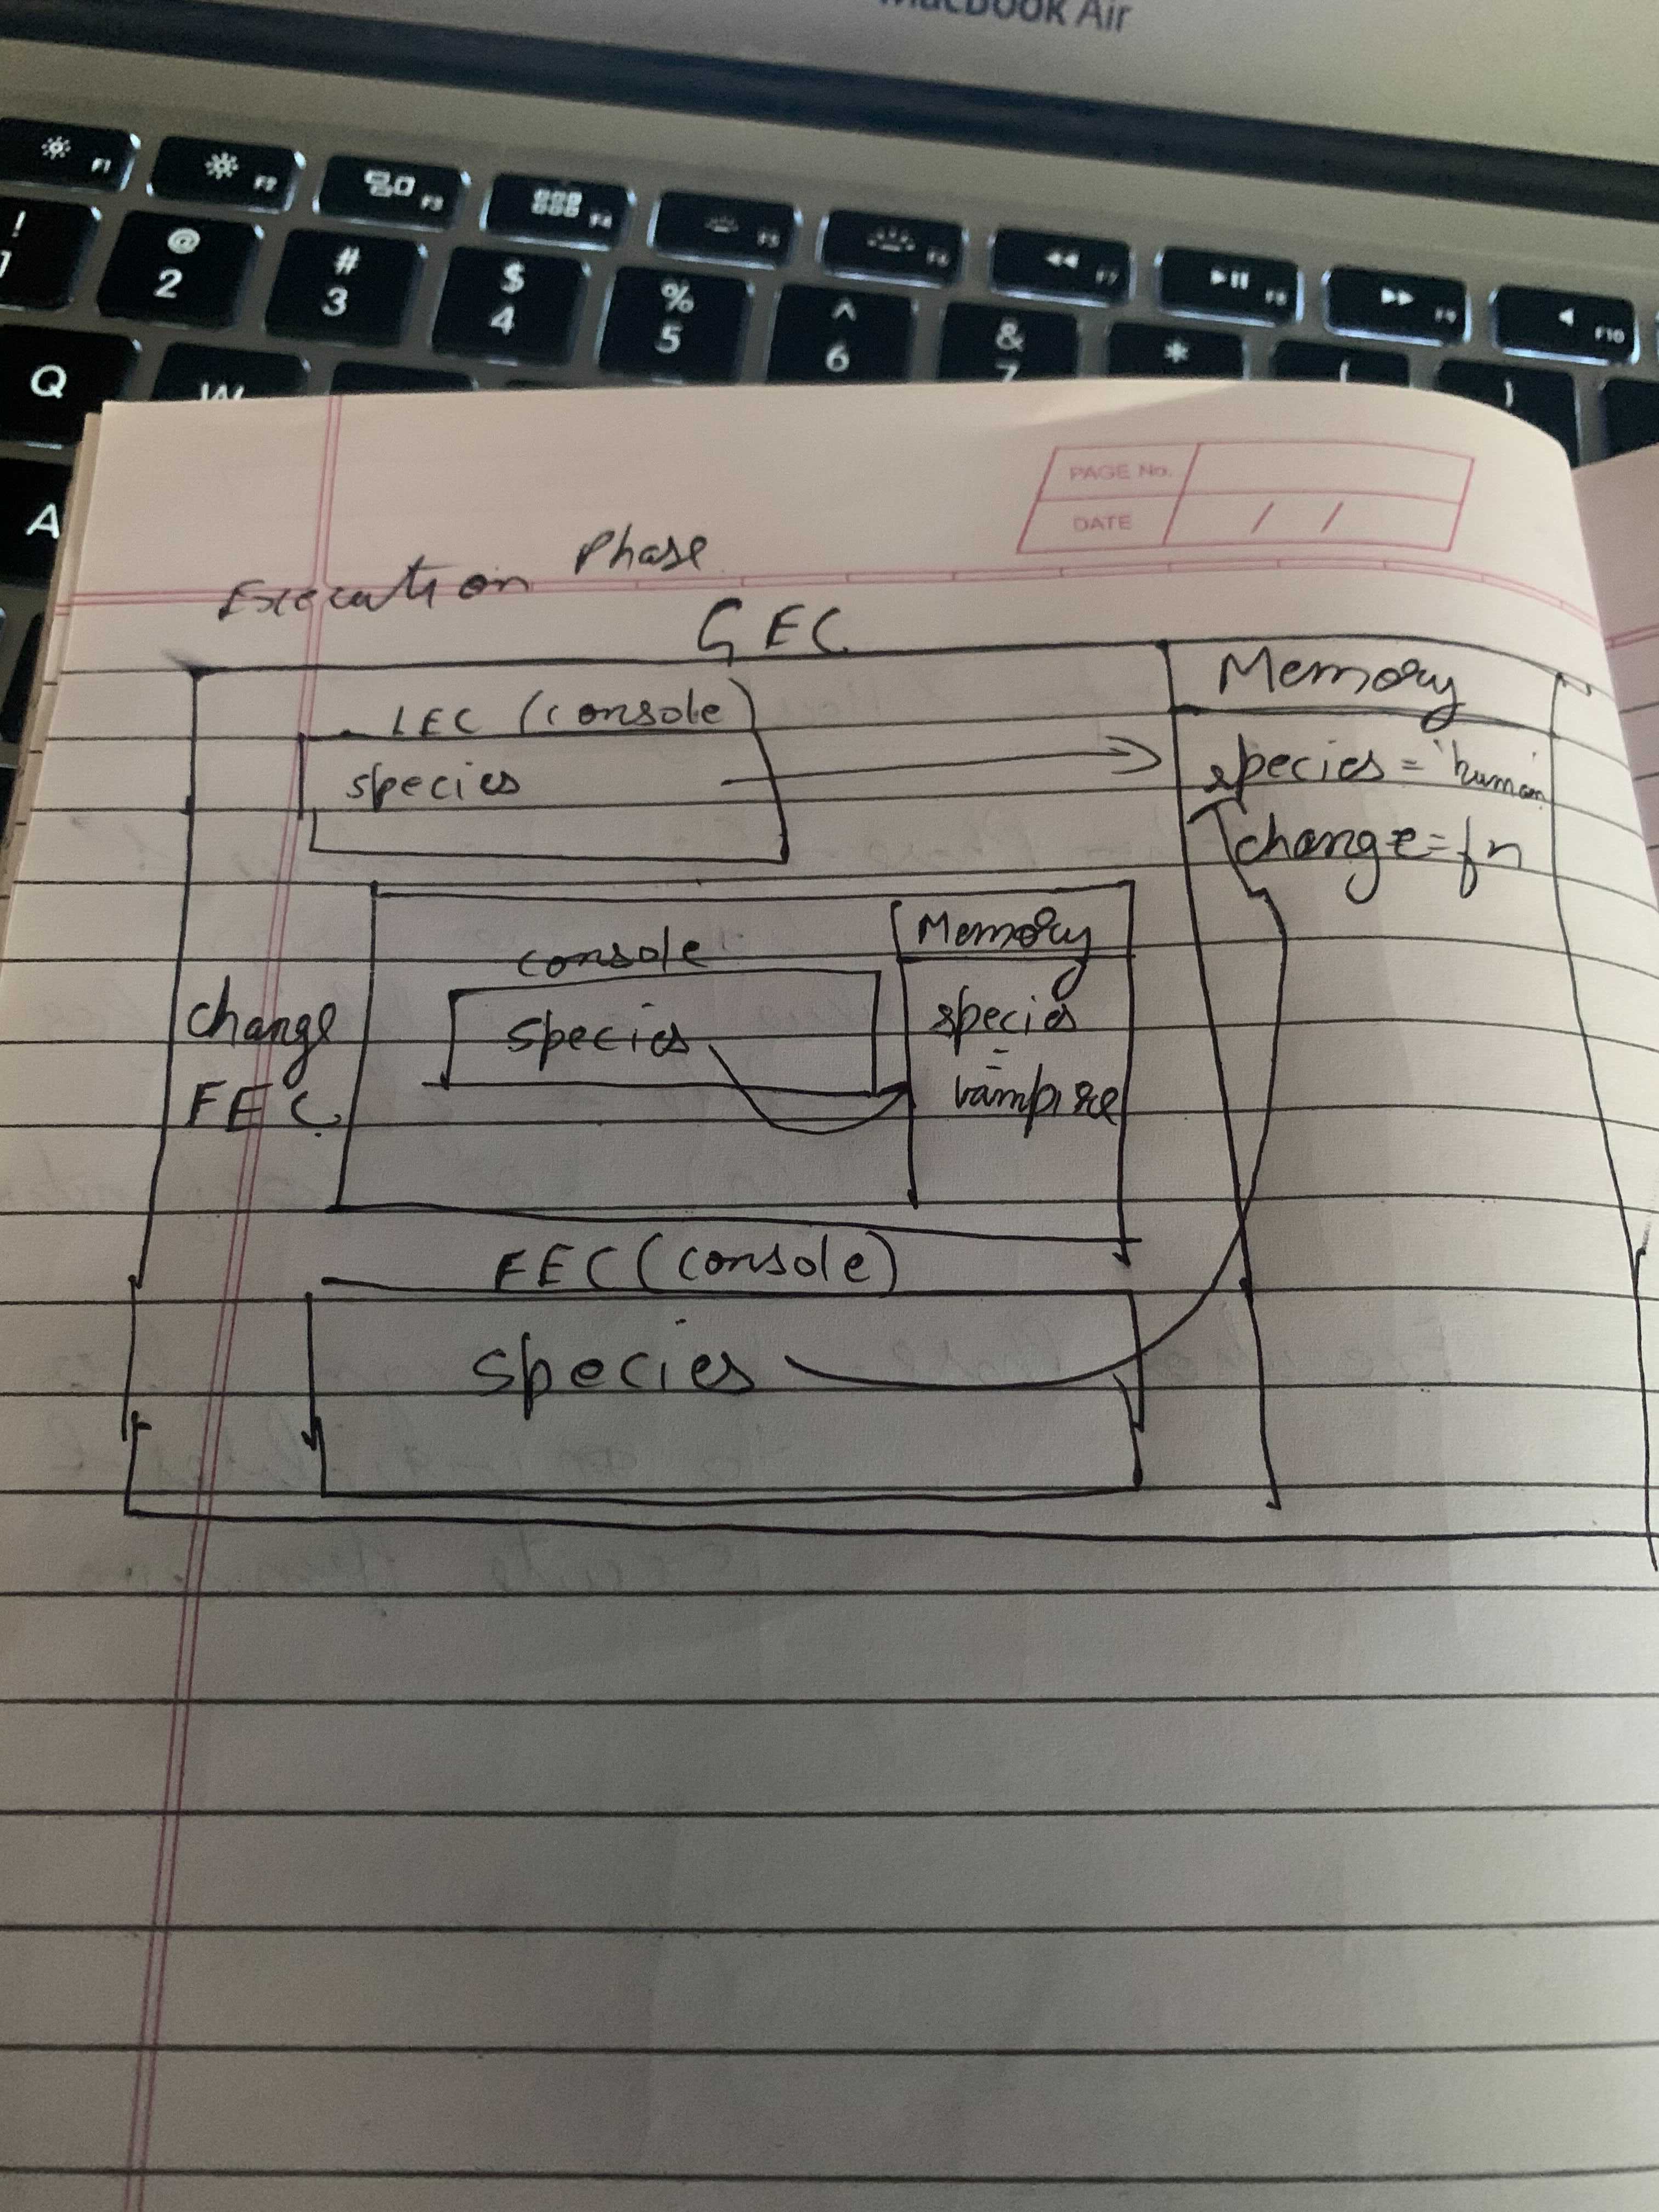 MacBook Air
F1 F2 F3 F4 F5 F6 F7 F8 F9 F10
! @ # $ % ^ & * ( )
1 2 3 4 5 6 7
Q W
A
PAGE No.
DATE / /
Execution Phase
GEC
Memory
LEC (console)
species
species = 'human'
change = fn
Memory
console
change
FEC
species
species
=
vampire
FEC (console)
species